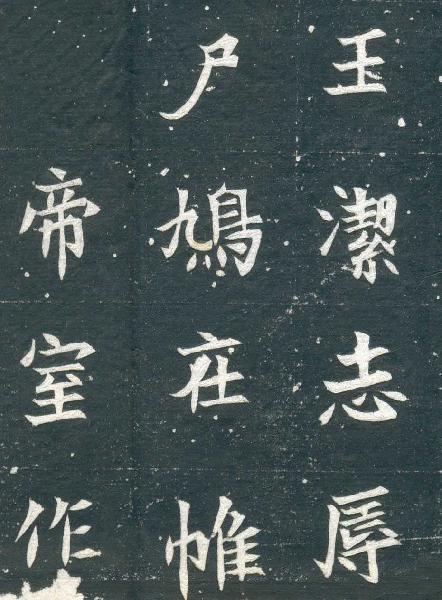 玉潔志厚
尸鳩在帷
帝室作